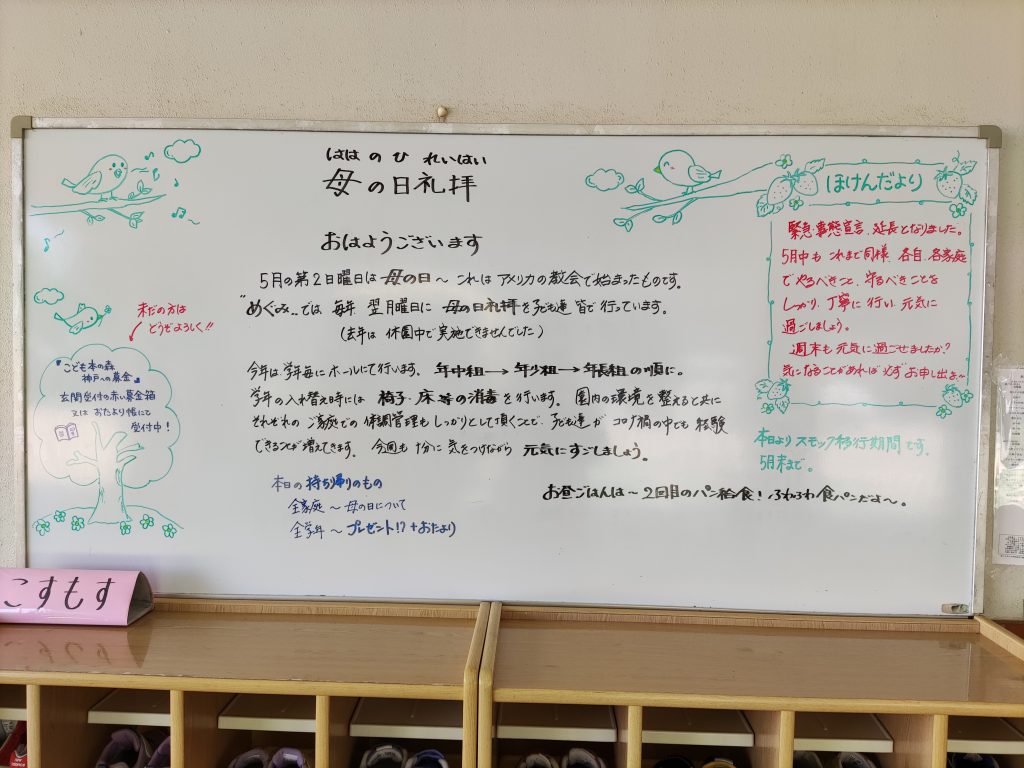 ははのひれいはい
母の日礼拝
おはようございます
5月の第2日曜日は母の日～これはアメリカの教会で始まったものです。
"めぐみ"では毎年翌月曜日に母の日礼拝を子ども達皆で行っています。
(去年は休園中で実施できませんでした)
今年は学年毎にホールにて行います。年中組→年少組→年長組の順に。
学年の入れ替え時には椅子・床等の消毒を行います。園内の環境を整えると共に
それぞれのご家庭での体調管理もしっかりとして頂くことで、子ども達がコロナ禍の中でも経験
できることが増えてきます。今週も十分に気をつけながら元気にすごしましょう。
本日の持ち帰りのもの
全家庭～母の日について
全学年～プレゼント!?+おたより
お昼ごはんは～2回目のパン給食!ふわふわ食パンだよ～。
未だの方は
どうぞよろしく!!
『こども本の森
神戸への募金』
玄関受付の赤い募金箱
又はおたより帳にて
受付中!
ほけんだより
緊急事態宣言、延長となりました。
5月中もこれまで同様、各自、各家庭
でやるべきこと、守るべきことを
しっかり、丁寧に行い、元気に
過ごしましょう。
週末も元気に過ごせましたか?
気になることがあれば必ずお申し出を～
本日よりスモック移行期間です。
5月末まで。
こすもす